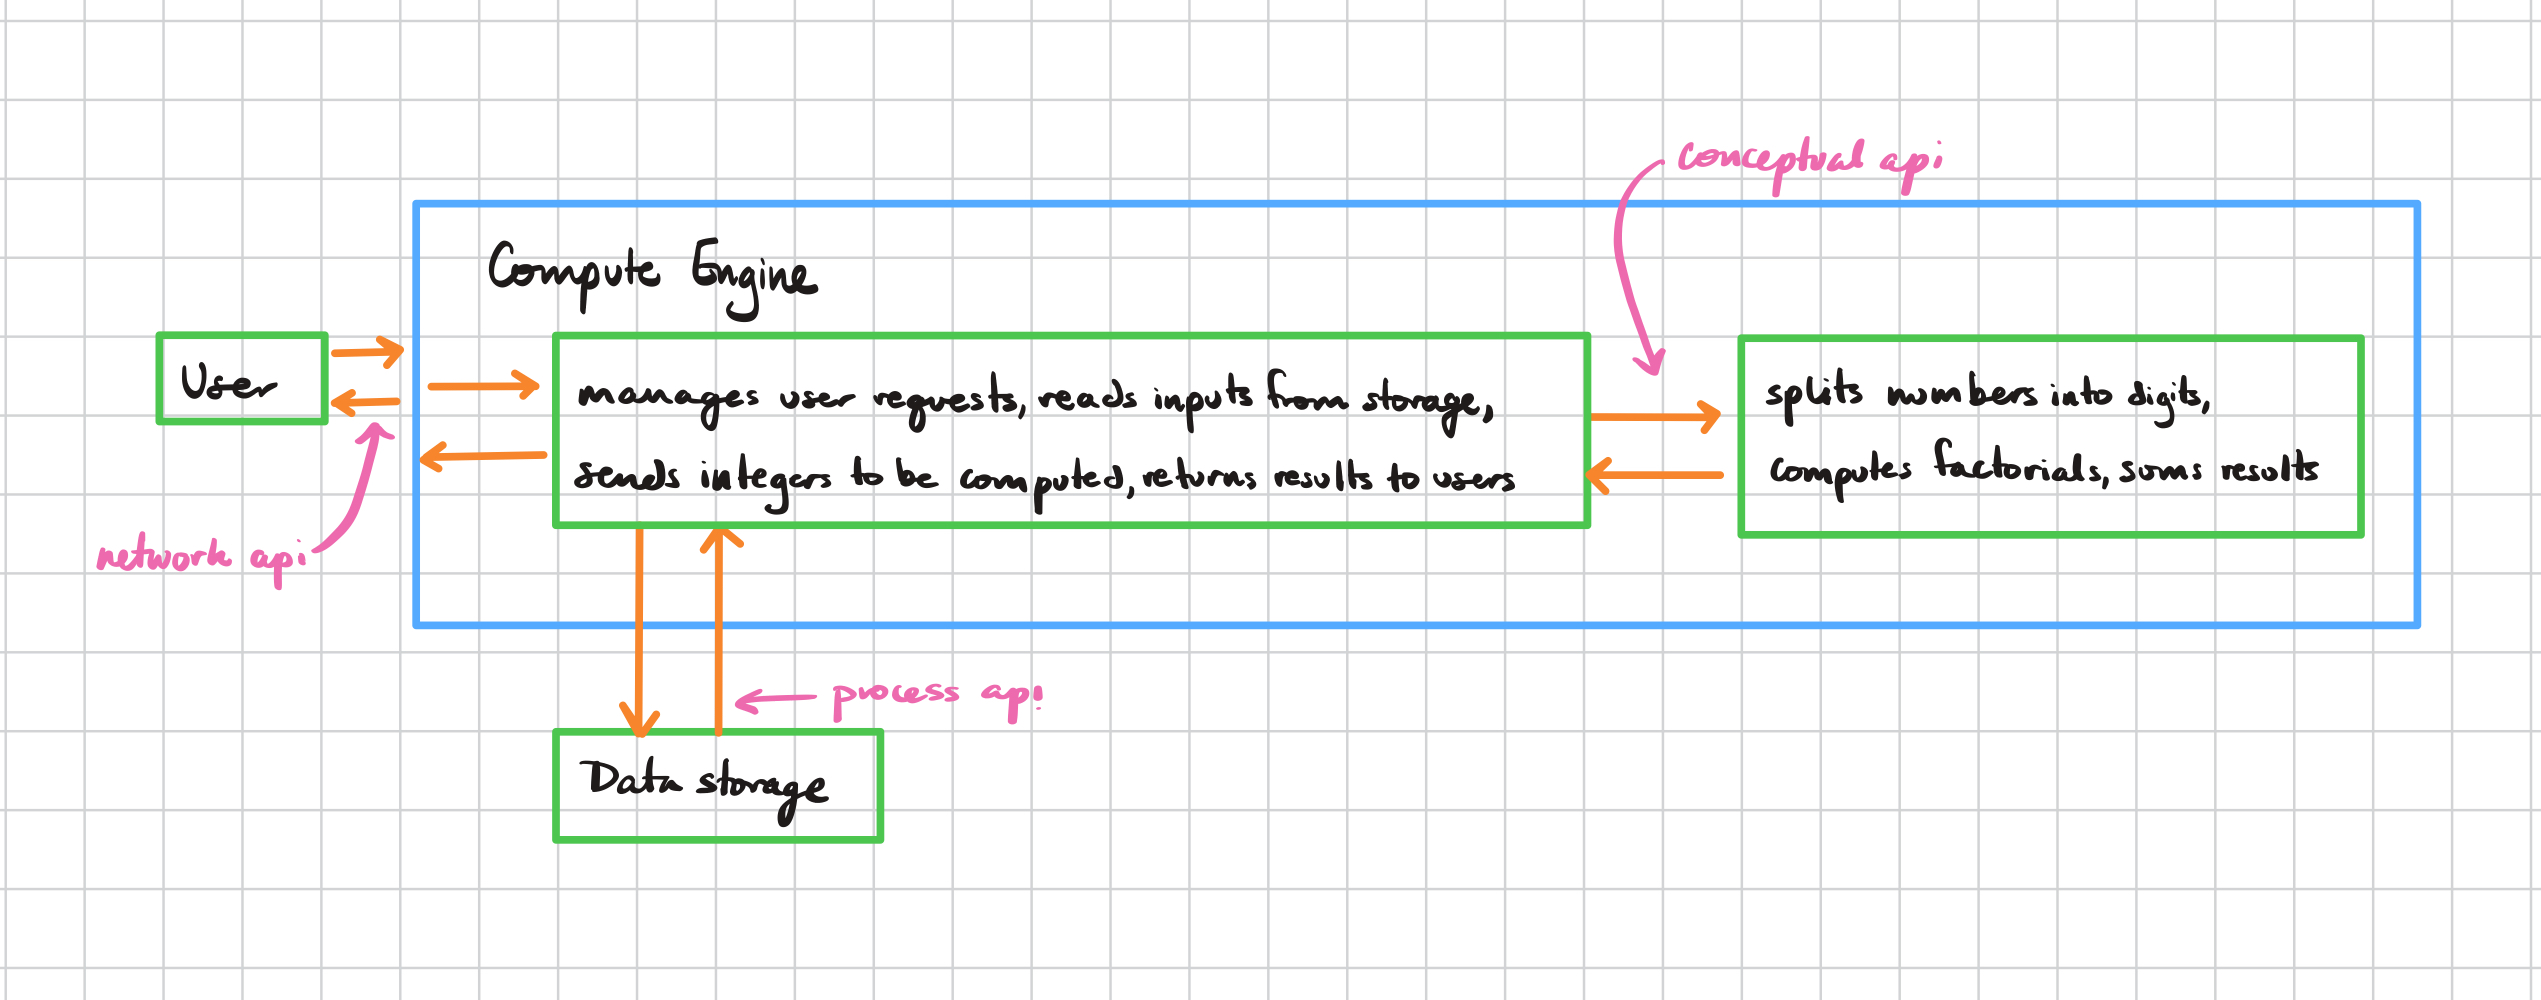 conceptual api
Compute Engine
User
manages user requests, reads inputs from storage,
sends integers to be computed, returns results to users
splits numbers into digits,
computes factorials, sums results
network api
process api
Data storage